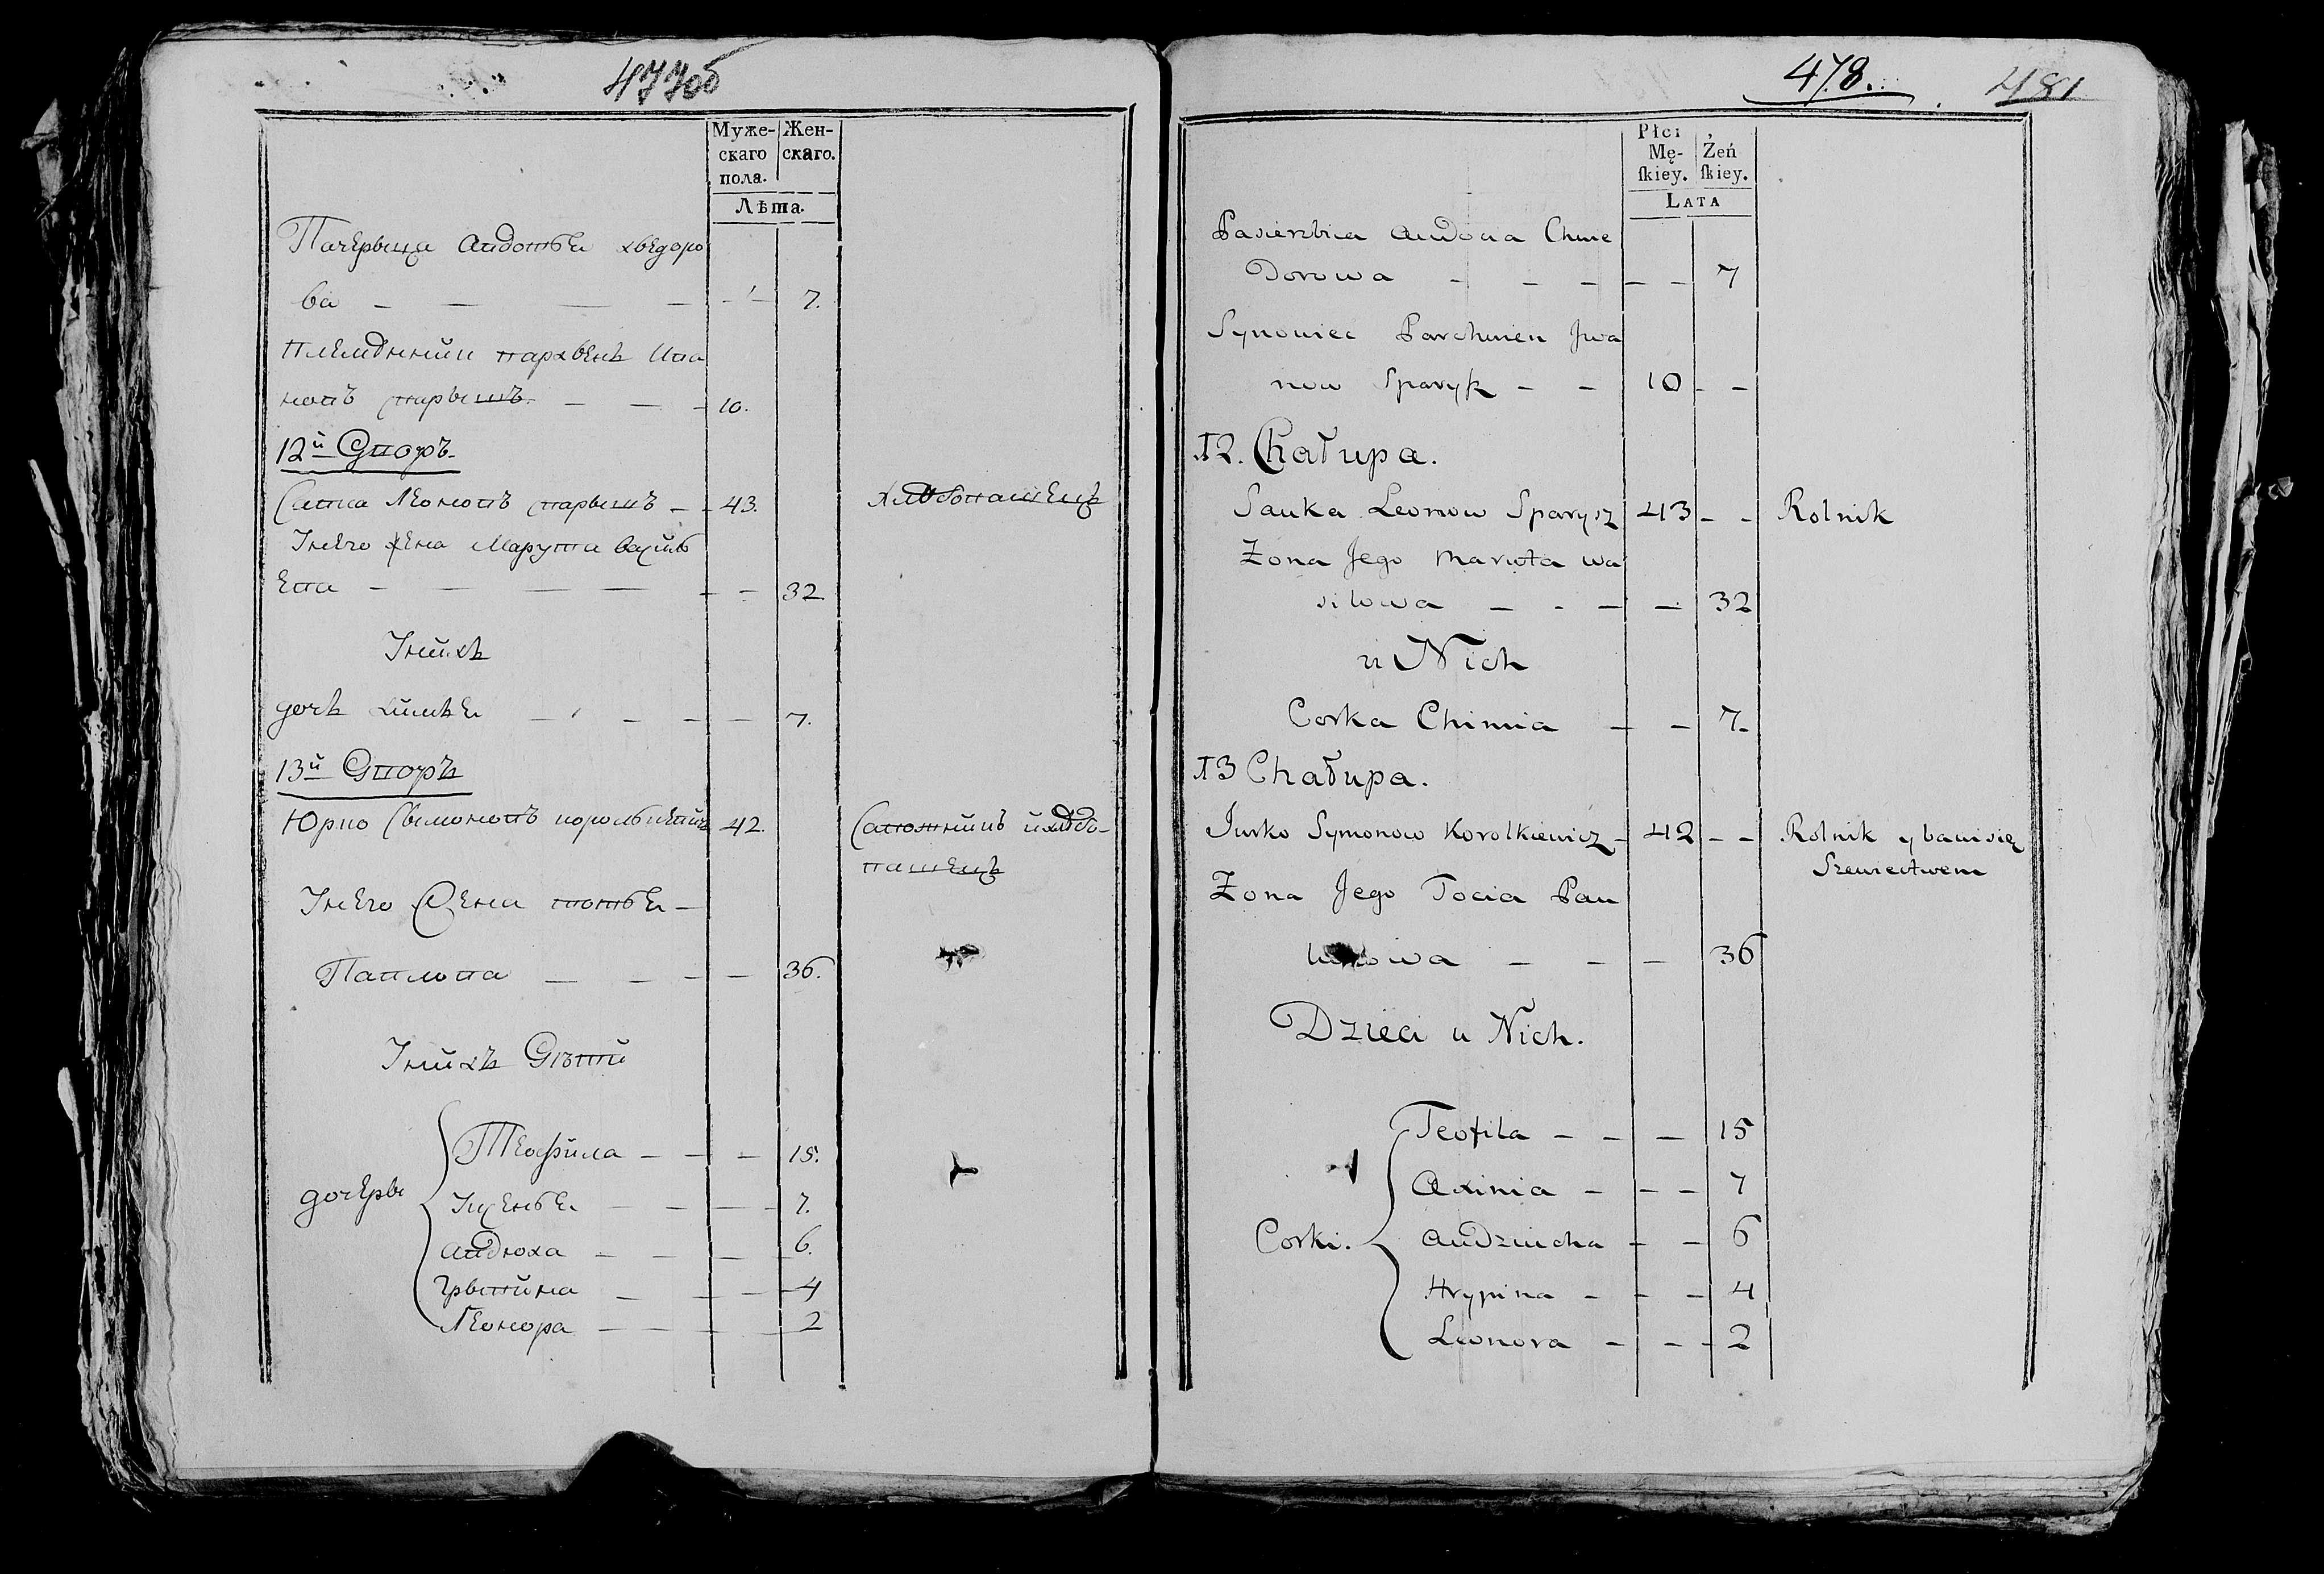 477об
Муже-
скаго
пола.
Жен-
скаго.
Лѣта.
Пачерьица Авдотьи хведоро
ва — — — — — 7.
племянник пархвенъ Ива
новъ спарышъ. — — — 10.
12й Дворъ.
Савка Леоновъ спарышъ — — 43. хлѣбопашецъ
Унего жена Марута васил
ева — — — — — — 32.
Унихъ
дочъ химъя — — — — 7.
13й Дворъ
Юрко Сымоновъ королькевичъ 42. Сапожникъ и хлѣбо-
пашецъ
Унего Жена тотья —
Павлова — — — — 36.
Унихъ Дѣти
дочеры
Теофила — — — 15.
Аксенья — — — — 7.
Авдюха — — — — 6.
Грыпина — — — 4
Леонора — — — — 2
478.
481
Płci
Mę-
ſkiey.
Żeń
ſkiey.
Lata
Pasierbica Audocia Chwe
Dorowa — — — — — 7
Synowiec Parchwien Jwa
now Sparysz — — 10 — —
12. Chałupa.
Sauka Leonow Sparysz 43 — — Rolnik
Żona Jego Maruta wa
silowa — — — — 32
u Nich
Corka Chimia — — 7
13 Chałupa.
Jurko Symonow Korolkiewicz — 42 — — Rolnik y bawi się
Szewiectwem
Żona Jego Tocia Pau
lowa — — — 36
Dzieci u Nich.
Corki.
Teofila — — — 15
Axinia — — — 7
Audziucha — — 6
Hrypina — — — 4
Leonora — — — 2